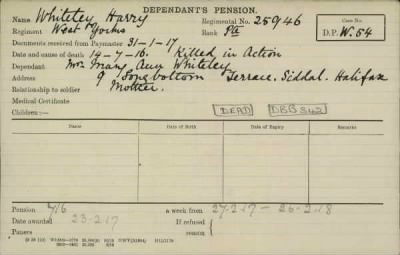 DEPENDANT'S PENSION.
Name Whiteley Harry Regimental No. 25946 Case No.
Regiment West Yorks Rank Pte D.P. W.54
Documents received from Paymaster 31-1-17
Date and cause of death 14-7-16. Killed in Action
Dependant Mrs Mary Ann Whiteley
Address 9 Longbottom Terrace. Siddal. Halifax
Relationship to soldier Mother.
Medical Certificate
Children:— DEAD
Name Date of Birth Date of Expiry
Pension 4/6 a week from 27-2-17 – 26-2-18
Date awarded 23-2-17 If refused
Papers reason